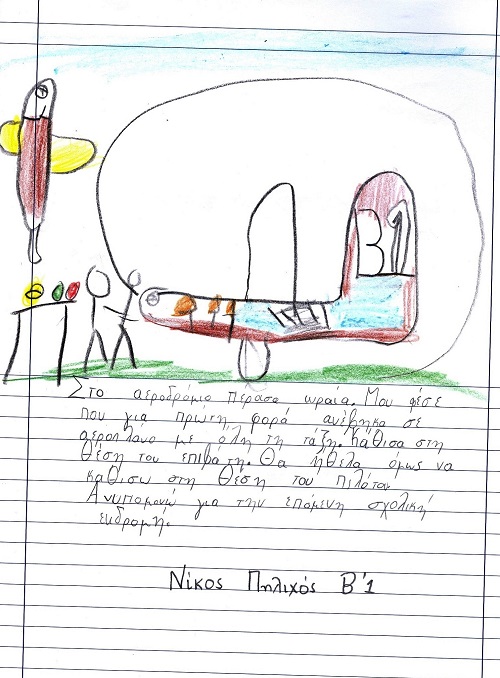 Β1
Στο αεροδρόμιο πέρασα ωραία. Μου φέσε
που για πρώτη φορά ανέβηκα σε
αεροπλάνο με όλη τη τάξη. Κάθισα στη
θέση του επιβάτη. Θα ήθελα όμως να
καθίσω στη θέση του πιλότου
Ανυπομονώ για την επόμενη σχολική
εκδρομή.
Νίκος Πηλιχός Β'1